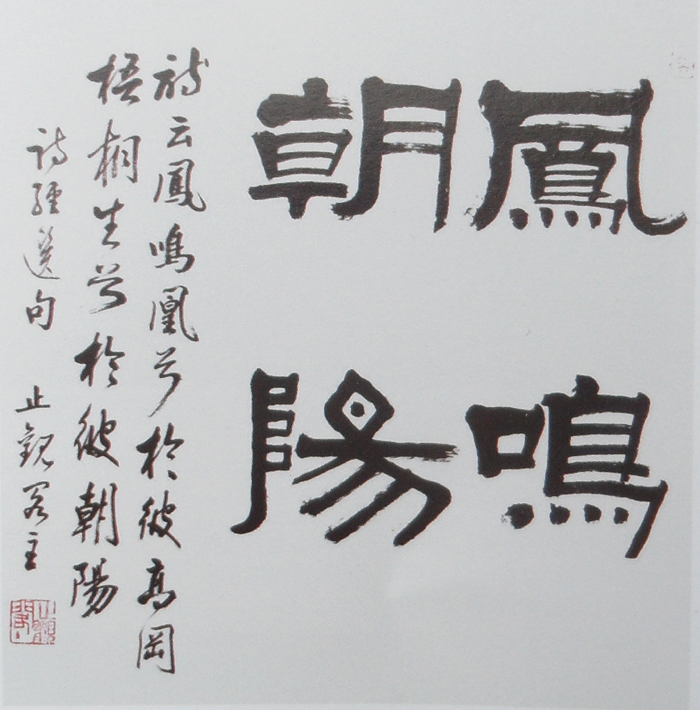 鳳鳴
朝陽
詩云鳳鳴凰兮於彼高岡
梧桐生兮於彼朝陽
詩經選句
止觀君主